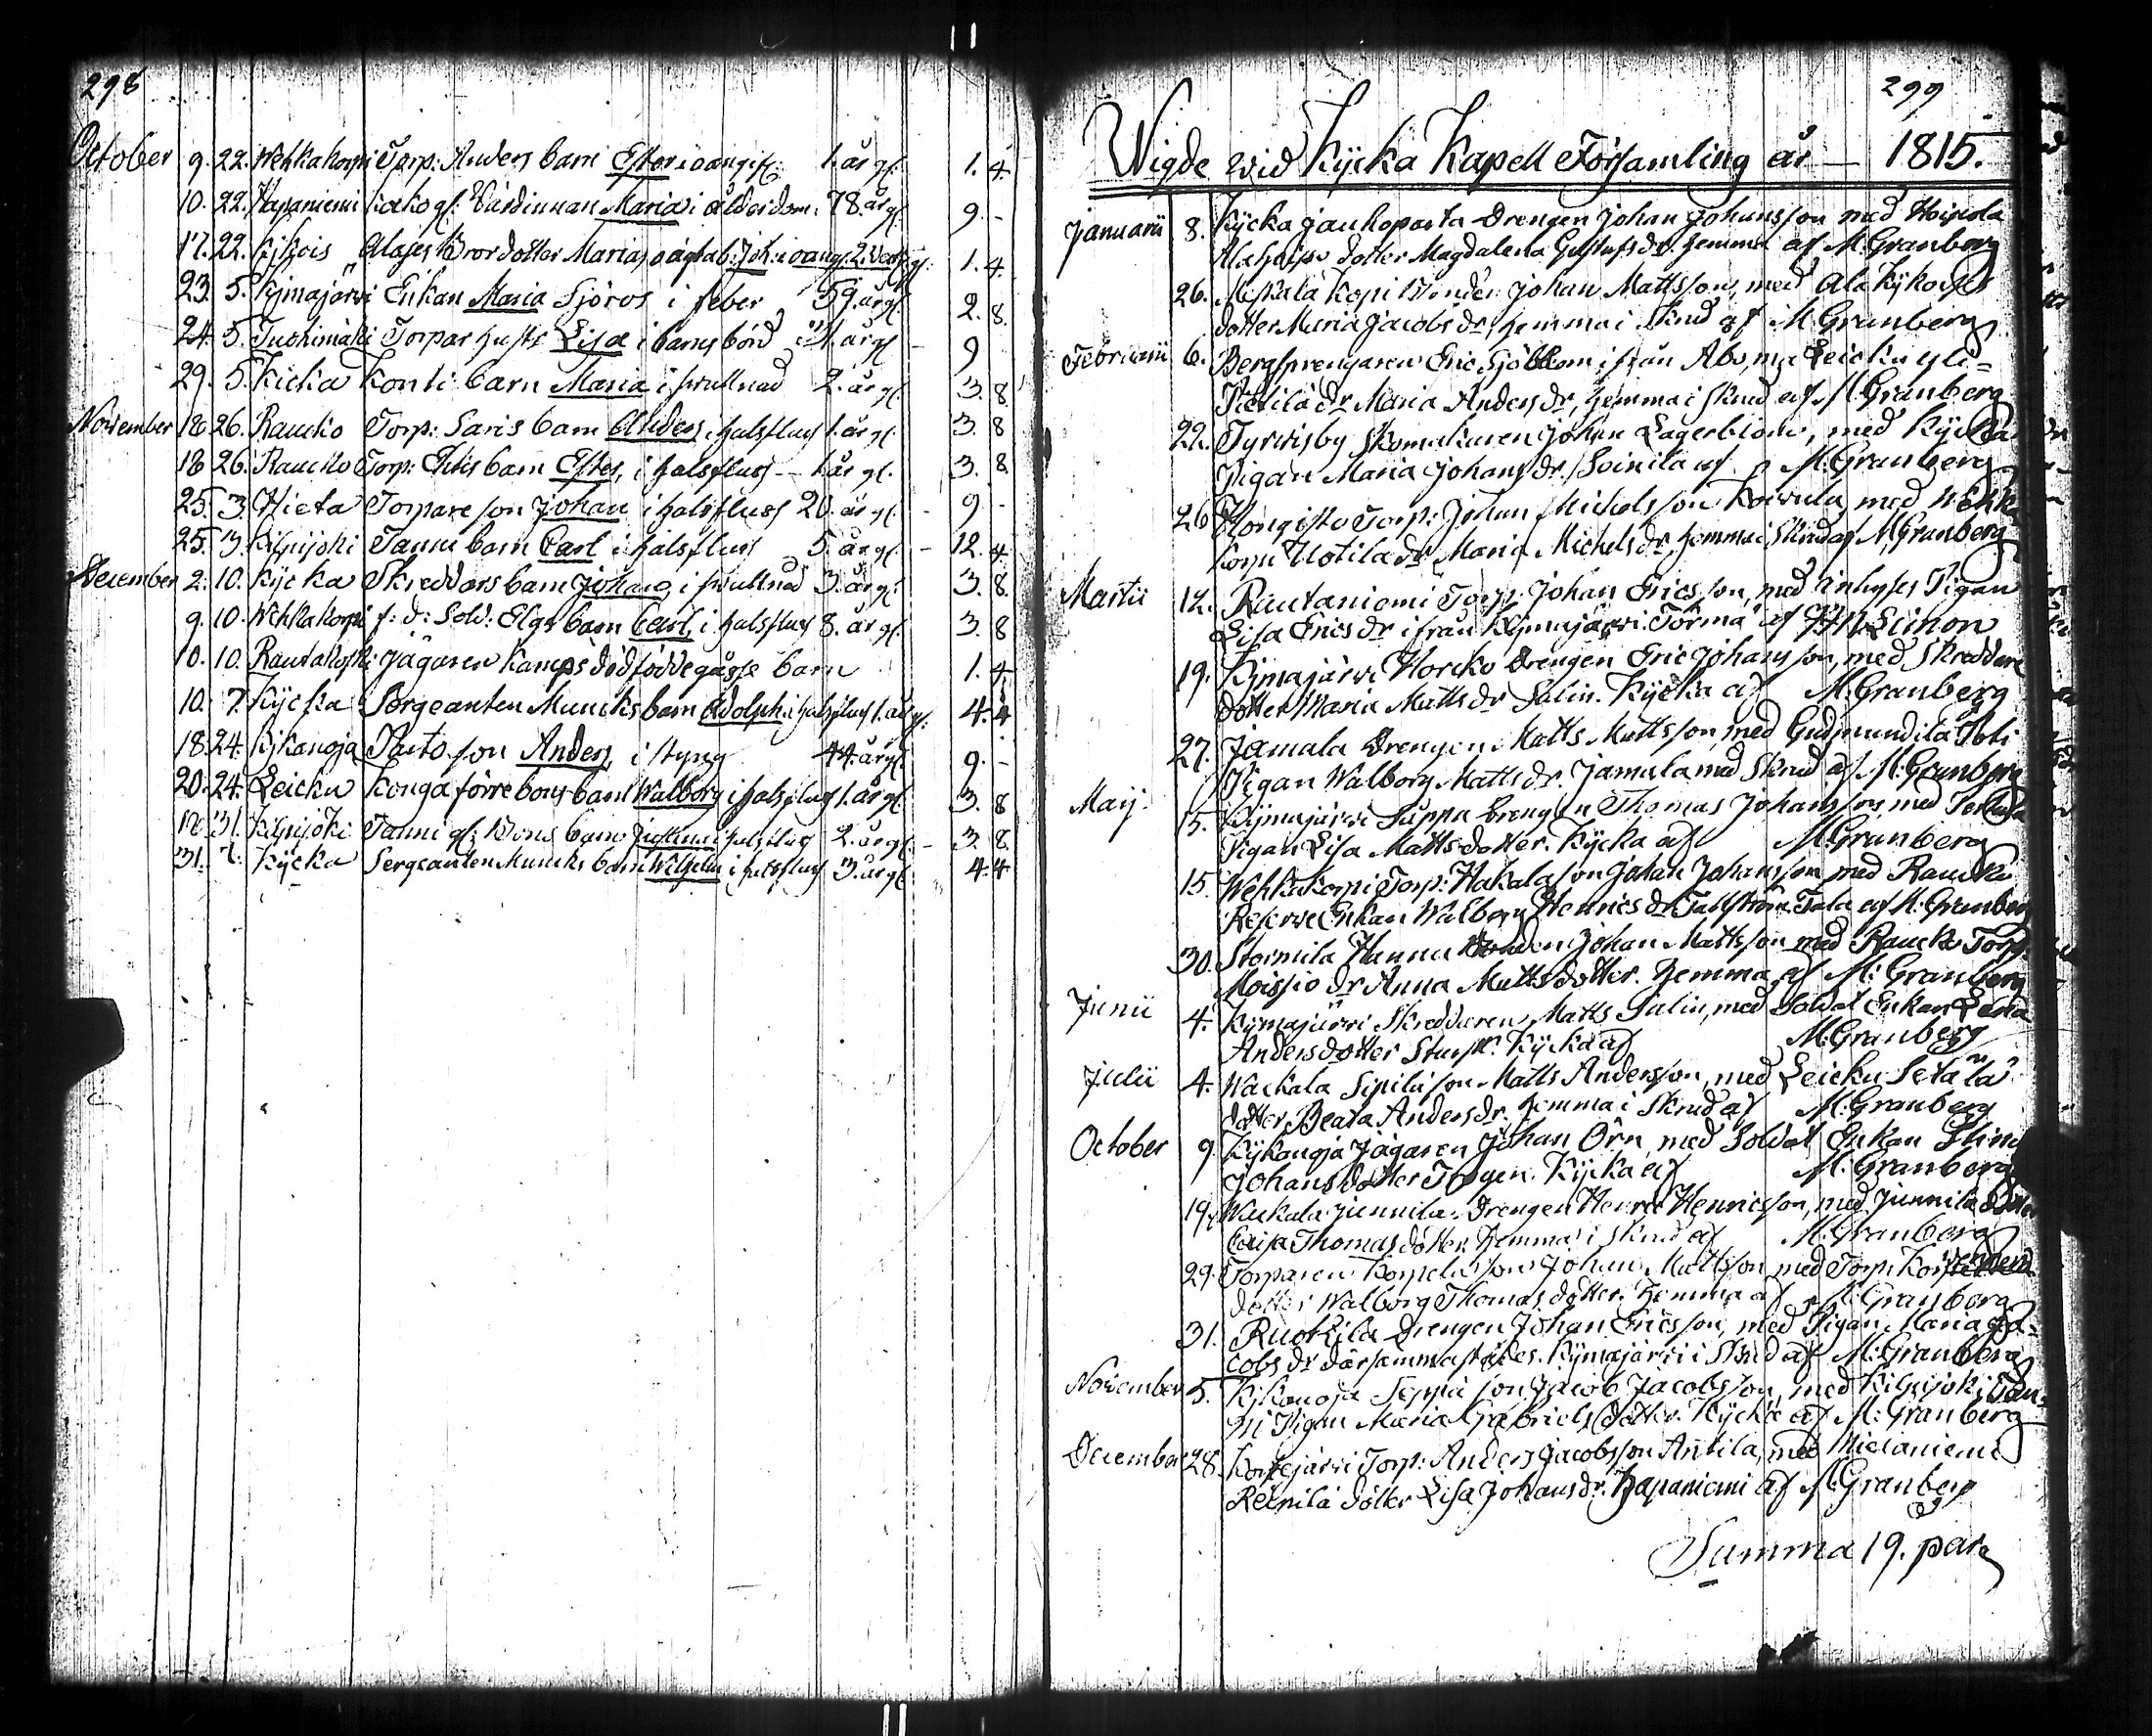 298
October 9. 22. Wehkakorpi Torp: Anders barn Ester i oangif: 1. år gl: 1. 4.
10. 22. Hapaniemi Kacko gl: Värdinnan Maria i ålderdom. 78. år gl. 9. -
17. 22. Kykois Alajes Brordotter Maria, oägta b: Joh: i oang. 2. Veck gl: 1. 4.
23. 5. Kymajärvi Enkan Maria Sjöros i feber 59. år gl. 2. 8.
24. 5. Tuohimäki Torpar hustr Lisa i barnsbörd 41. år gl - 9
29. 5. Kicka Konti barn Maria i frullnad 2. år gl. 3. 8.
November 18 26. Raucko Torp: Saris barn Anders i halsfluss 1. år gl. 3. 8
18 26. Raucko Torp: barn Ester, i halsfluss - 1. år gl. 3. 8
25. 3. Hieta Torpare son Johan i halsfluss 20. år gl. - 9. -
25. 3. Kilpijoki Tanni barn Carl i halsfluss 5. år gl. - 12. 4
December 2. 10. Kycka Skreddars barn Johan, i frullnad 3. år gl. 3. 8.
9. 10. Wehkakorpi f: d: Sold: Elgs barn Carl, i halsfluss 8. år gl. 3. 8
10. 10. Rautakoski Jägaren Kamps dödfödde gosse barn 1. 4.
10. 7. Kycka Sergeanten Muncks barn Adolph i halsfluss 1. år gl. 4. 4
18. 24. Kykanoja son Anders, i styng 44. år gl. 9. -
20. 24. Leicku Konga förre bons barn Walborg i halsfluss 1. år gl. 3. 8
18. 31. Kilpijoki Tanni gl: Bons barn i halsfluss 2. år gl. - 3. 8.
31. 7. Kycka Sergeanten Muncks barn Wilhelm i halsfluss 3. år gl. 4. 4
299
Wigde wid Kycka Kapell Församling år — 1815.
Januarii 8. Kycka Jaukoparta Drengen Johan Johansson med
dotter Magdalena Gustafs dr. hemma af M. Granberg
26. Miskala Kopi Bonden Johan Mattsson, med Ala Kykois
dotter Maria Jacobs dr, hemma i skrud af M. Granberg
Februarii 6. Bergsprengaren Eric Sjöblom ifrån Abo, med Leicku yli=
Pietilä dr Maria Anders dr, hemma i skrud af M. Granberg
22. Tyrvisby Skomakaren Johan Lagerblom, med Kycka
Pigan Maria Johans dr. Soinila af M. Granberg
26 Hongisto Torp: Johan Michelsson Koivula, med Wehka
korpi Uotila dr Maria Michels dr, hemma i skrud af M. Granberg
Martii 12. Rautaniemi Torp. Johan Ericsson, med inhyses Pigan
Lisa Erics dr ifrån Kymajärvi. Törmä af Leinon
19. Kymajärvi Horcko Drengen Eric Johansson, med Skreddare
dotter Maria Matts dr Salin. Kycka af M. Granberg
27. Jamala Drengen Matts Mattsson, med Gudmundila
Pigan Walborg Matts dr. Jamala med skrud af M. Granberg
Maij. 15. Kymajärvi Suppa Drengen Thomas Johansson, med
Pigan Lisa Matts dotter. Kycka af M. Granberg
15. Wehkakorpi Torp: Hakala son Johan Johansson, med Raucko
Reserve Enkan Walborg Henrics dr Tallström Tala af M. Granberg
30. Stormila Hannu Bonden Johan Mattsson med Raucko Torp.
Moisio dr Anna Matts dotter. hemma af M: Granberg
Junii 4. Kymajärvi Skreddaren Matts Salin, med Soldat Enkan Lena
Andersdotter Kycka af M. Granberg
Julii 4. Wackala Sipilä son Matts Andersson, med Leicku Setälä
dotter Beata Anders dr. hemma i skrud af M. Granberg
October 9. Kykanoja Jägaren Johan Örn, med Soldat Enkan Stina
Johans dotter Kycka af M. Granberg
19. Wackala Junnila. Drengen Henric Henricsson, med Junnila dotter
Caisa Thomas dotter. hemma i skrud af M. Granberg
29. Torparen son Johan Mattsson med Torp.
dotter Walborg Thomas dotter. hemma af M. Granberg
31. Ruokila Drengen Johan Ericsson, med Pigan Maria Ja=
cobs dr därsammastädes. Kymajärvi i skrud af M. Granberg
November 5. Kykanoja Seppä son Jacob Jacobsson, med Kilpijoki Tan=
ni Pigan Maria Gabriels dotter. Kycka af M: Granberg
December 28. Korpejärvi Torp: Anders Jacobsson Antila, med Mietaniemi
Reinilä dotter Lisa Johans dr. hapaniemi af M. Granberg
Summa 19. par